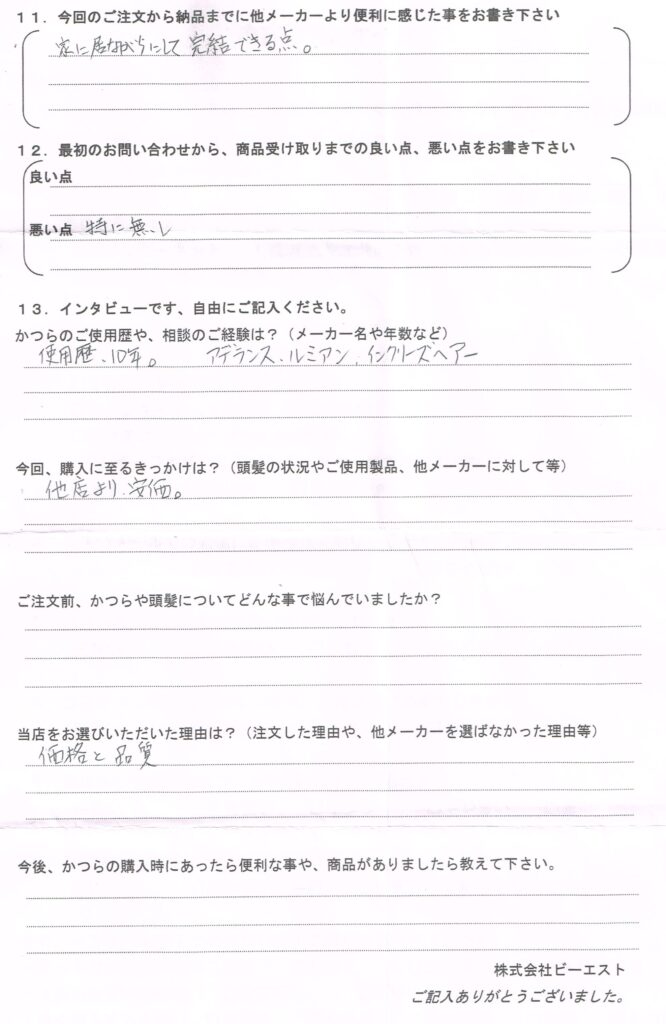 11．今回のご注文から納品までに他メーカーより便利に感じた事をお書き下さい
家に居ながらにして完結できる点。
12．最初のお問い合わせから、商品受け取りまでの良い点、悪い点をお書き下さい
良い点
悪い点 特に無し
13．インタビューです、自由にご記入ください。
かつらのご使用歴や、相談のご経験は？（メーカー名や年数など）
使用歴、10年。 アデランス、ルミアン、イングリーズヘアー
今回、購入に至るきっかけは？（頭髪の状況やご使用製品、他メーカーに対して等）
他店より、安価。
ご注文前、かつらや頭髪についてどんな事で悩んでいましたか？
当店をお選びいただいた理由は？（注文した理由や、他メーカーを選ばなかった理由等）
価格と品質
今後、かつらの購入時にあったら便利な事や、商品がありましたら教えて下さい。
株式会社ビーエスト
ご記入ありがとうございました。